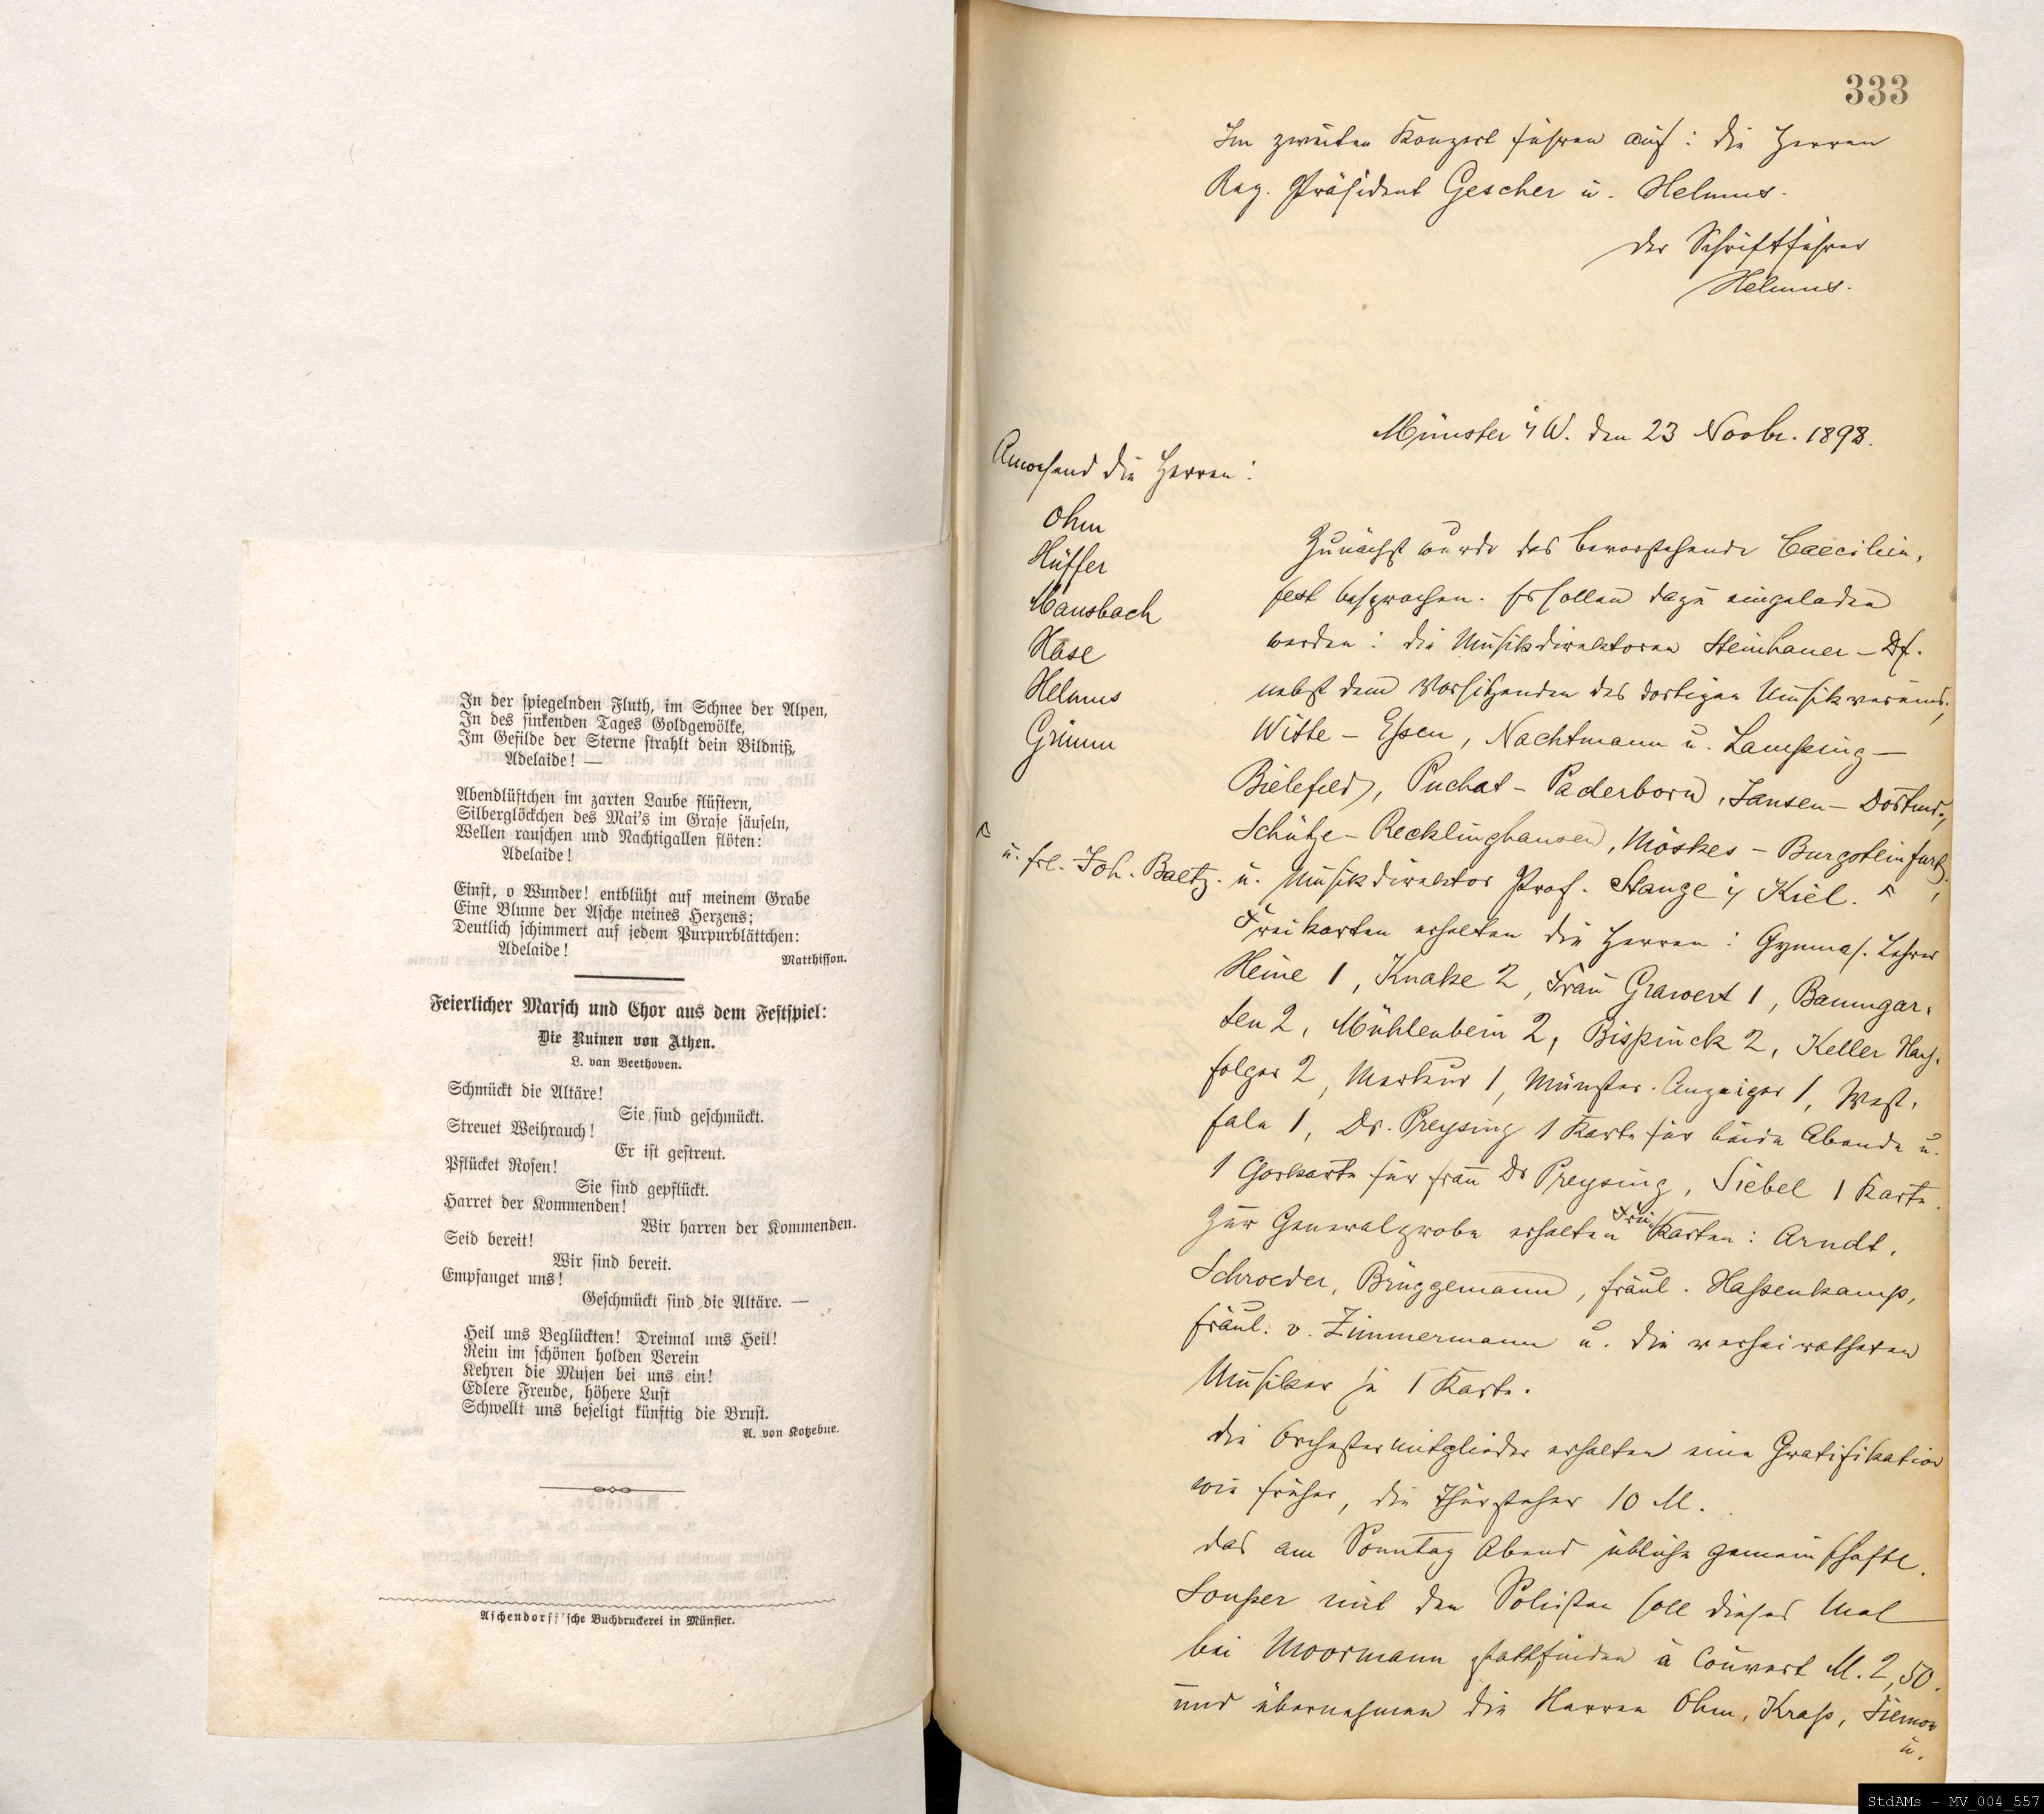 In der spiegelnden Fluth, im Schnee der Alpen,
In des sinkenden Tages Goldgewölke,
Im Gefilde der Sterne strahlt dein Bildniß,
Adelaide! —
Abendlüftchen im zarten Laube flüstern,
Silberglöckchen des Mai's im Grase säuseln,
Wellen rauschen und Nachtigallen flöten:
Adelaide!
Einst, o Wunder! entblüht auf meinem Grabe
Eine Blume der Asche meines Herzens;
Deutlich schimmert auf jedem Purpurblättchen:
Adelaide!
Matthisson.
Feierlicher Marsch und Chor aus dem Festspiel:
Die Ruinen von Athen.
L. van Beethoven.
Schmückt die Altäre!
Sie sind geschmückt.
Streuet Weihrauch!
Er ist gestreut.
Pflücket Rosen!
Sie sind gepflückt.
Harret der Kommenden!
Wir harren der Kommenden.
Seid bereit!
Wir sind bereit.
Empfanget uns!
Geschmückt sind die Altäre. —
Heil uns Beglückten! Dreimal uns Heil!
Rein im schönen holden Verein
Kehren die Musen bei uns ein!
Edlere Freude, höhere Lust
Schwellt uns beseligt künftig die Brust.
A. von Kotzebue.
Aschendorff'sche Buchdruckerei in Münster.
333
Im zweiten Konzert führen auf: die Herren
Reg. Präsident Gescher u. Helmus.
Der Schriftführer
Helmus.
Münster i/W. den 23 Novbr. 1898.
Anwesend die Herren:
Ohm
Hüffer
Mausbach
Hase
Helmus
Grimm
Zunächst wurde das bevorstehende Caecilien-
fest besprochen. Es sollen dazu eingeladen
werden: die Musikdirektoren Steinhauer – Df.
nebst dem Vorsitzenden des dortigen Musikvereins,
Witte – Essen, Nachtmann u. Lamping –
Bielefeld, Puchat – Paderborn, Jansen – Dortmd.,
Schütze – Recklinghausen, Möskes – Burgsteinfurt,
u. Musikdirektor Prof. Stange i/ Kiel.
u. Frl. Joh. Baetz.
Freikarten erhalten die Herren: Gymnas. Lehrer
Heine 1, Knake 2, Frau Grawert 1, Baumgar-
ten 2, Mühlenbein 2, Bispinck 2, Keller Nach-
folger 2, Merkur 1, Münster. Anzeiger 1, West-
fale 1, Dr. Preysing 1 Karte für beide Abende u.
1 Chorkarte für Frau Dr Preysing, Siebel 1 Karte.
Zur Generalprobe erhalten Frei-Karten: Arndt,
Schroeder, Brüggemann, Fräul. Hassenkamp,
Fräul. v. Zimmermann u. die verheiratheten
Musiker je 1 Karte.
Die Orchestermitglieder erhalten eine Gratifikation
wie früher, die Thürsteher 10 M.
Das am Sonntag Abend übliche gemeinschaftl.
Souper mit den Solisten soll dieses Mal
bei Moormann stattfinden à Couvert M. 2,50.
und übernehmen die Herren Ohm, Krass, Siemon
u.
StdAMs – MV_004_557